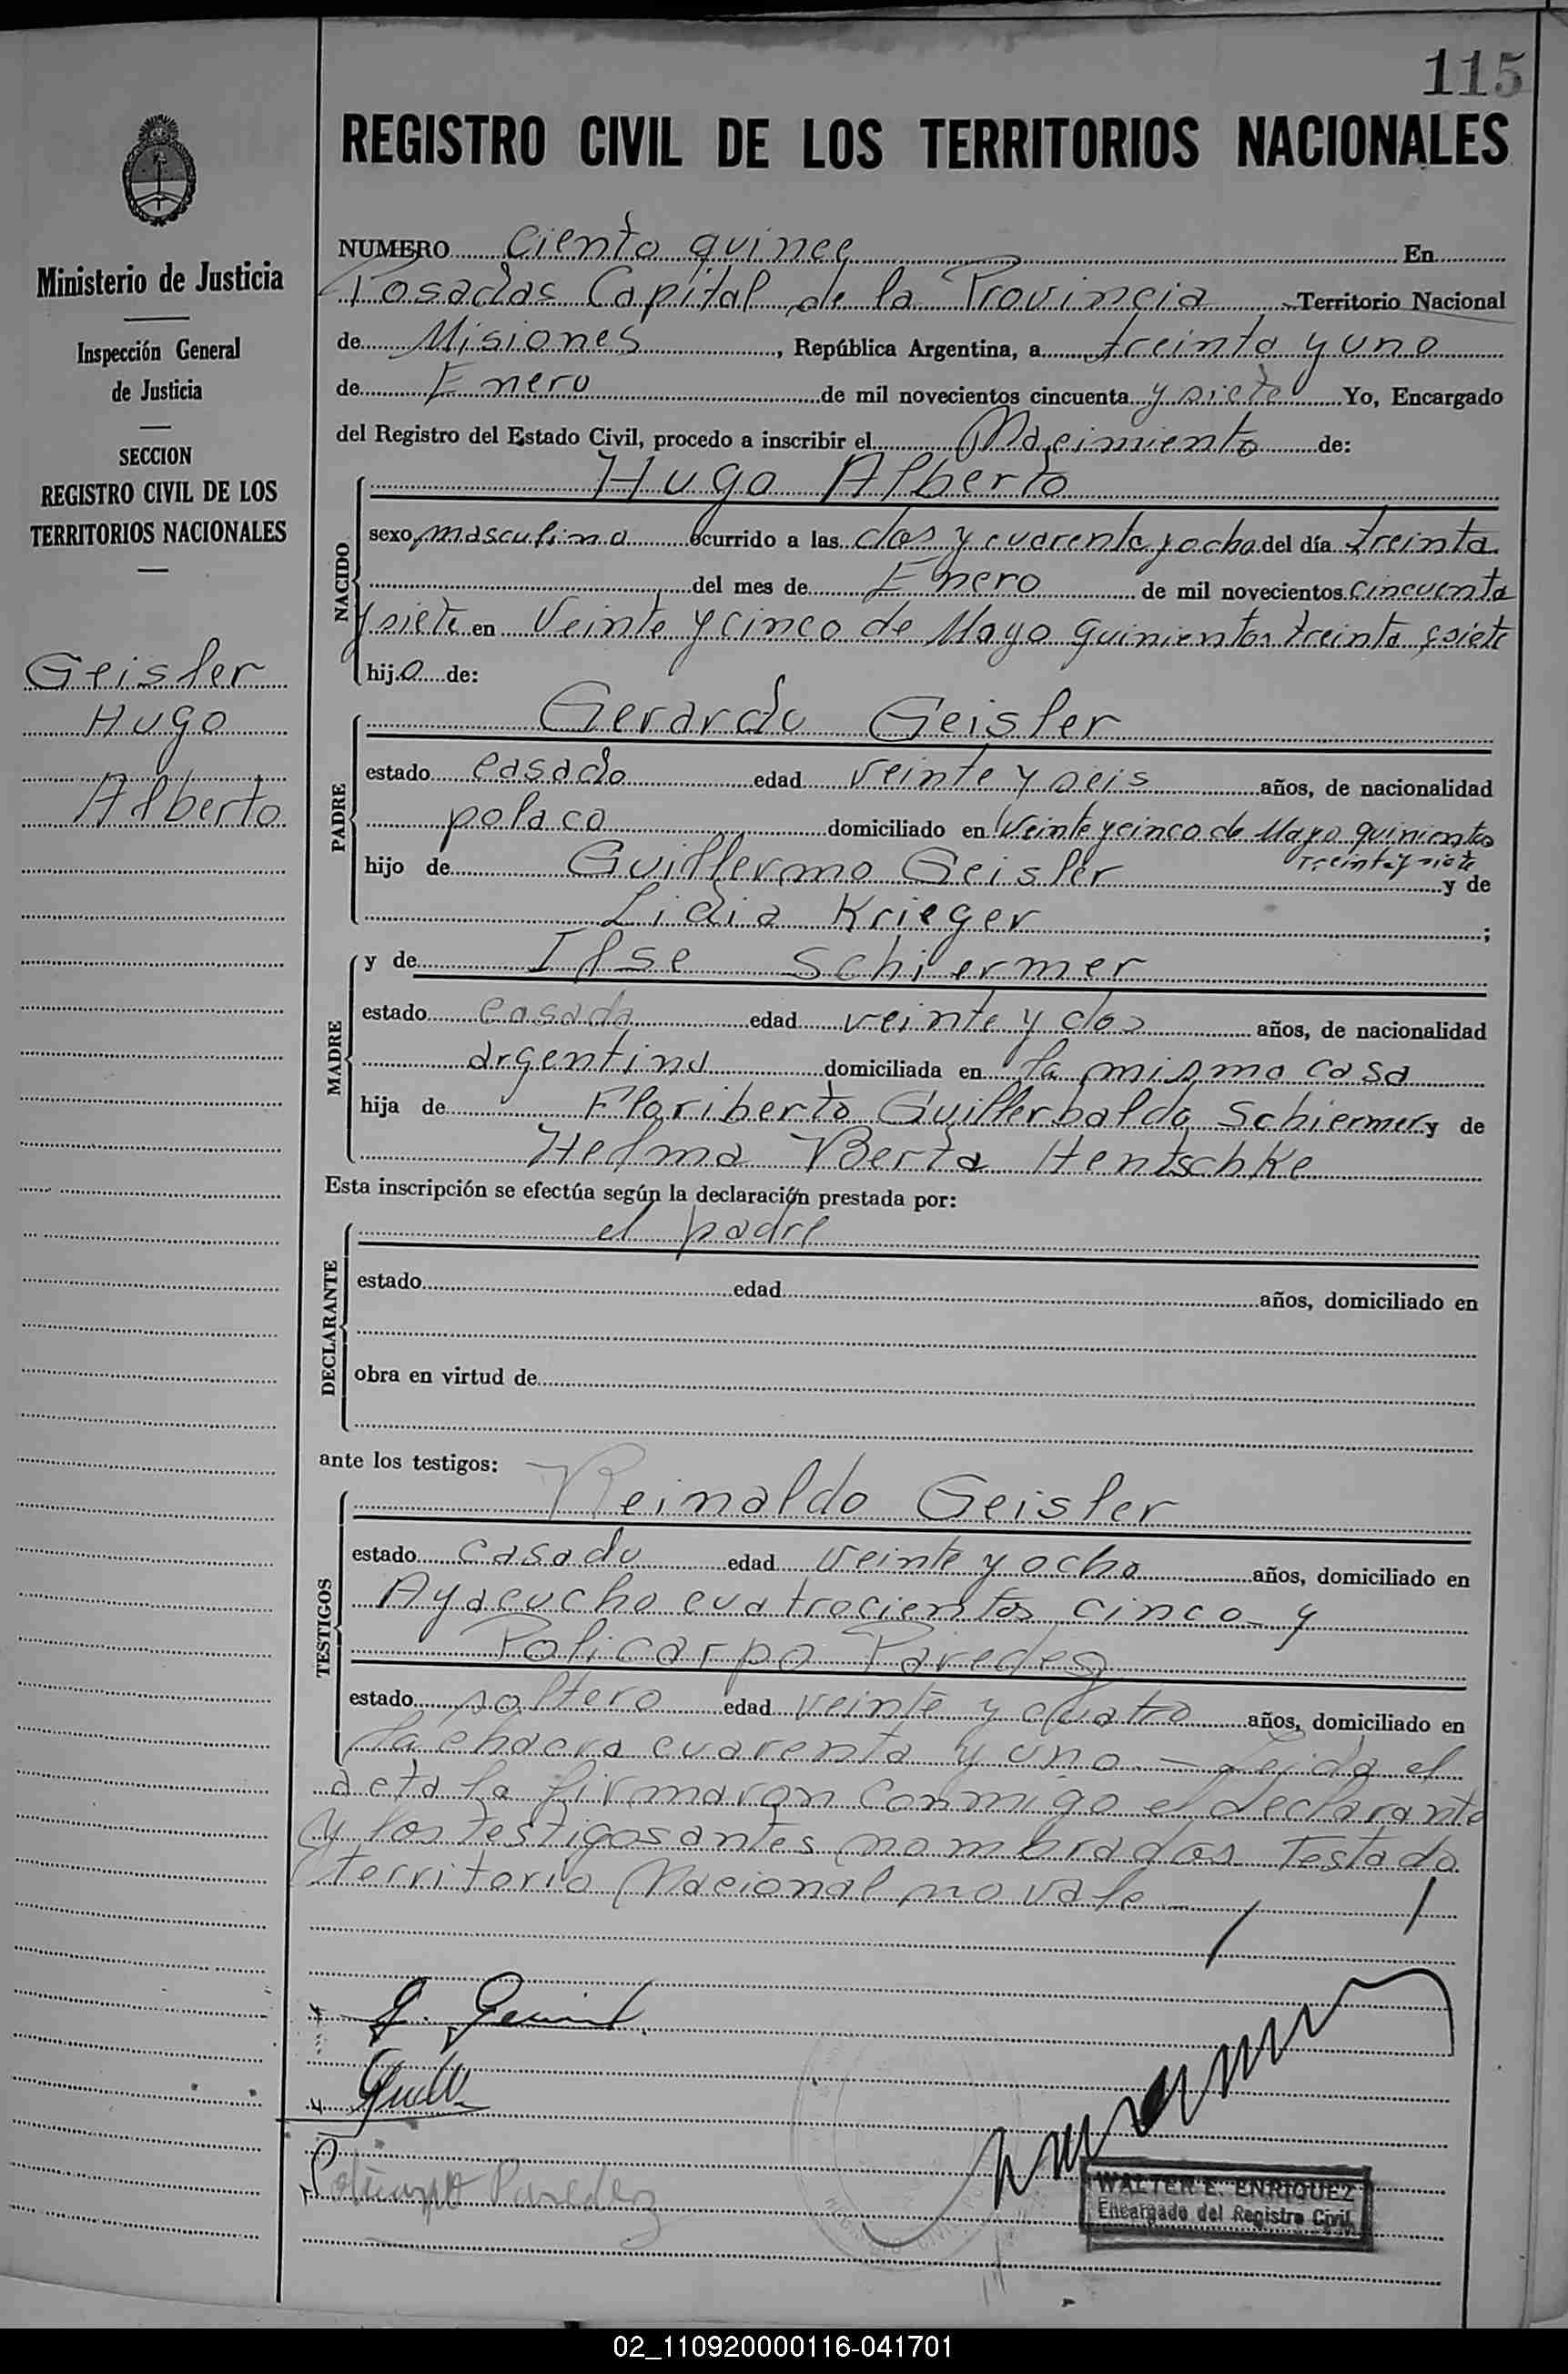 115
REGISTRO CIVIL DE LOS TERRITORIOS NACIONALES
Ministerio de Justicia
Inspección General
de Justicia
SECCION
REGISTRO CIVIL DE LOS
TERRITORIOS NACIONALES
Geisler
Hugo
Alberto
NUMERO ciento quince En
Posadas Capital de la Provincia Territorio Nacional
de Misiones, República Argentina, a treinta y uno
de Enero de mil novecientos cincuenta y siete Yo, Encargado
del Registro del Estado Civil, procedo a inscribir el Nacimiento de:
NACIDO
Hugo Alberto
sexo masculino ocurrido a las dos y cuarenta y ocho del día treinta
del mes de Enero de mil novecientos cincuenta
y siete en Veinte y cinco de Mayo quinientos treinta y siete
hijo de:
PADRE
Gerardo Geisler
estado casado edad veinte y seis años, de nacionalidad
polaco domiciliado en Veinte y cinco de Mayo quinientos
treinta y siete
hijo de Guillermo Geisler y de
Lidia Krieger ;
MADRE
y de Ilse Schiermer
estado casada edad veinte y dos años, de nacionalidad
argentina domiciliada en la misma casa
hija de Floriberto Guillerbaldo Schiermer y de
Helma Berta Hentschke
Esta inscripción se efectúa según la declaración prestada por:
DECLARANTE
el padre
estado edad años, domiciliado en
obra en virtud de
ante los testigos:
TESTIGOS
Reinaldo Geisler
estado casado edad veinte y ocho años, domiciliado en
Ayacucho cuatrocientos cinco y
Policarpo Paredez
estado soltero edad veinte y cuatro años, domiciliado en
la chacra cuarenta y uno — Leida el
acta la firmaron conmigo el declarante
y los testigos antes nombrados. Testado
territorio Nacional no vale —
Policarpo Paredez
WALTER E. ENRIQUEZ
Encargado del Registro Civil
02_110920000116-041701